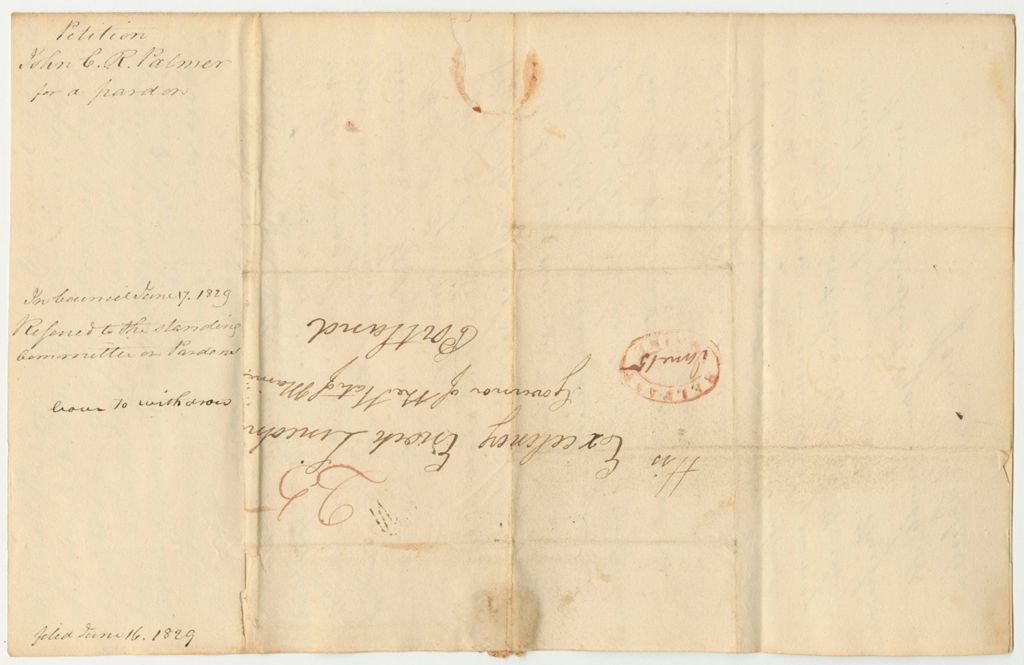 Petition
John C. R. Palmer
for a pardon
In Council June 17. 1829
Referred to the standing
Committee on Pardons
leave to withdraw
filed June 16. 1829
His
Excelency Enoch Lincoln
Govenor of the State of Maine
Portland
25
BELFAST
June 15